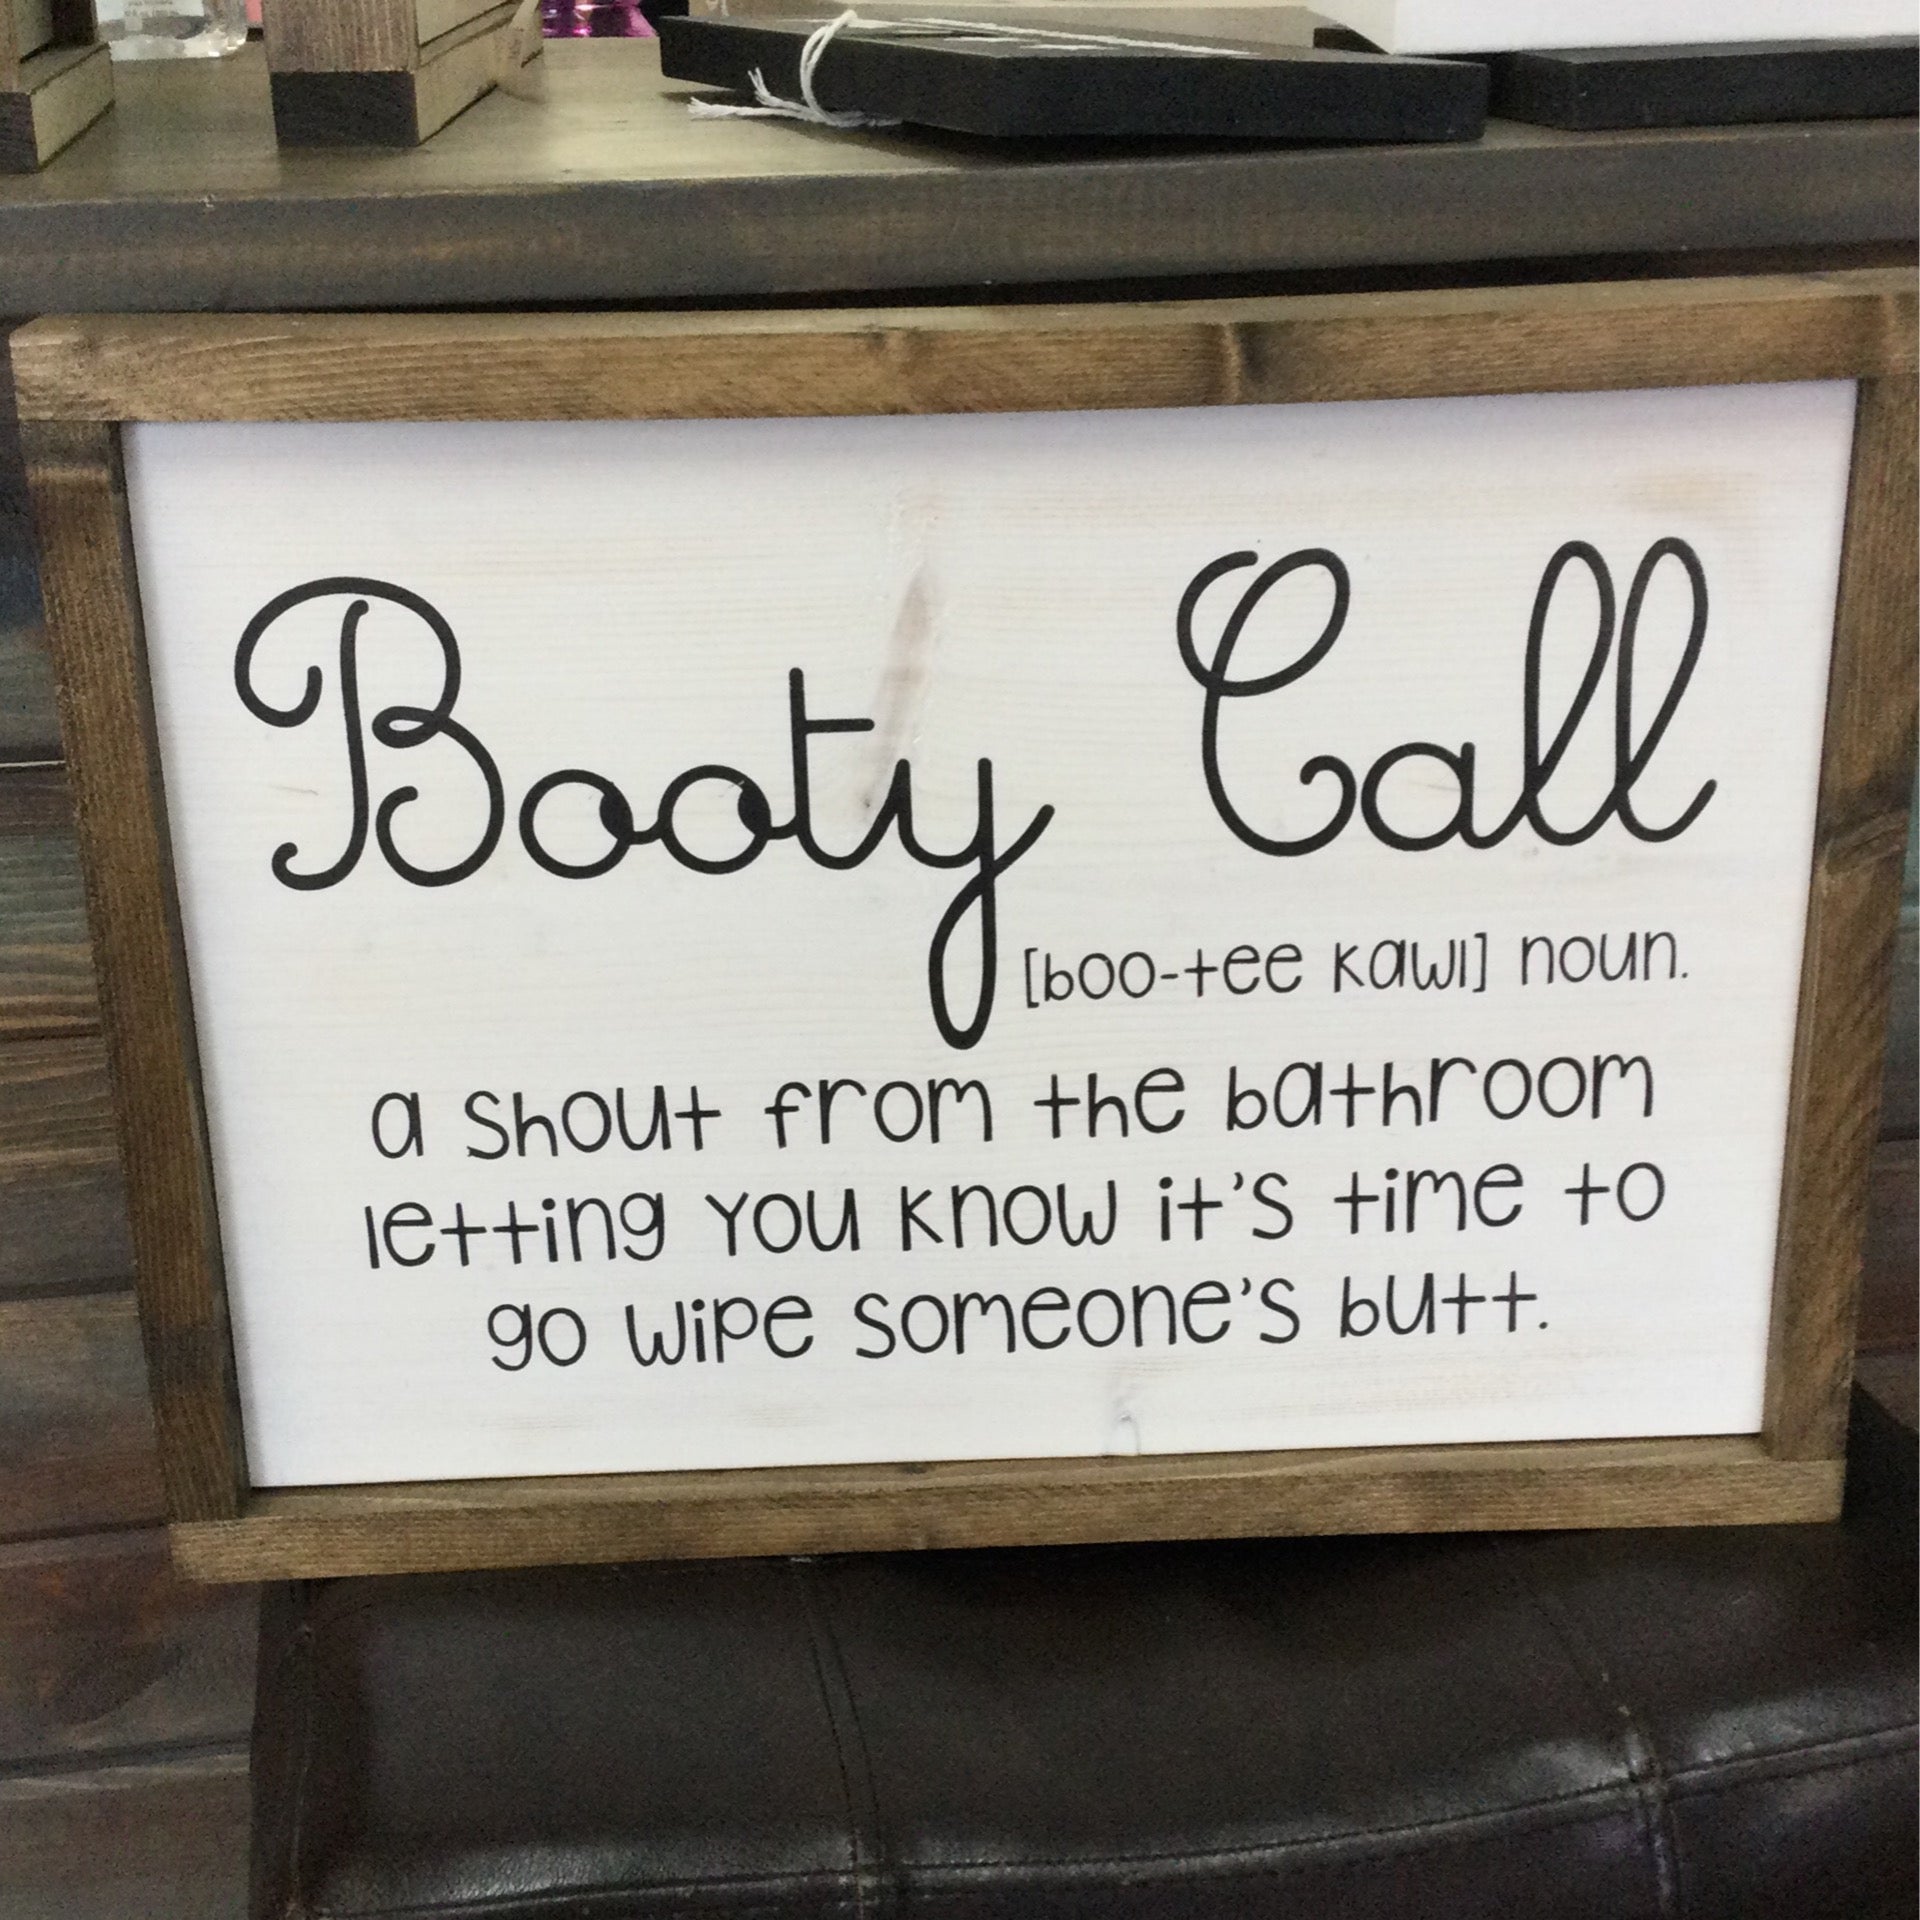 Booty Call
[boo-tee kawl] noun.
a shout from the bathroom
letting you know it's time to
go wipe someone's butt.